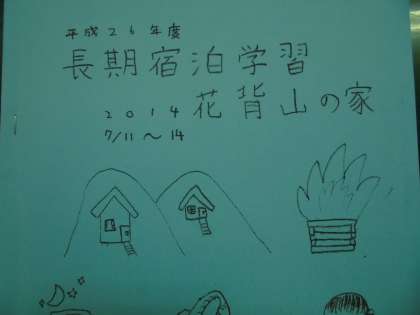 平成26年度
長期宿泊学習
2014花背山の家
7/11～14